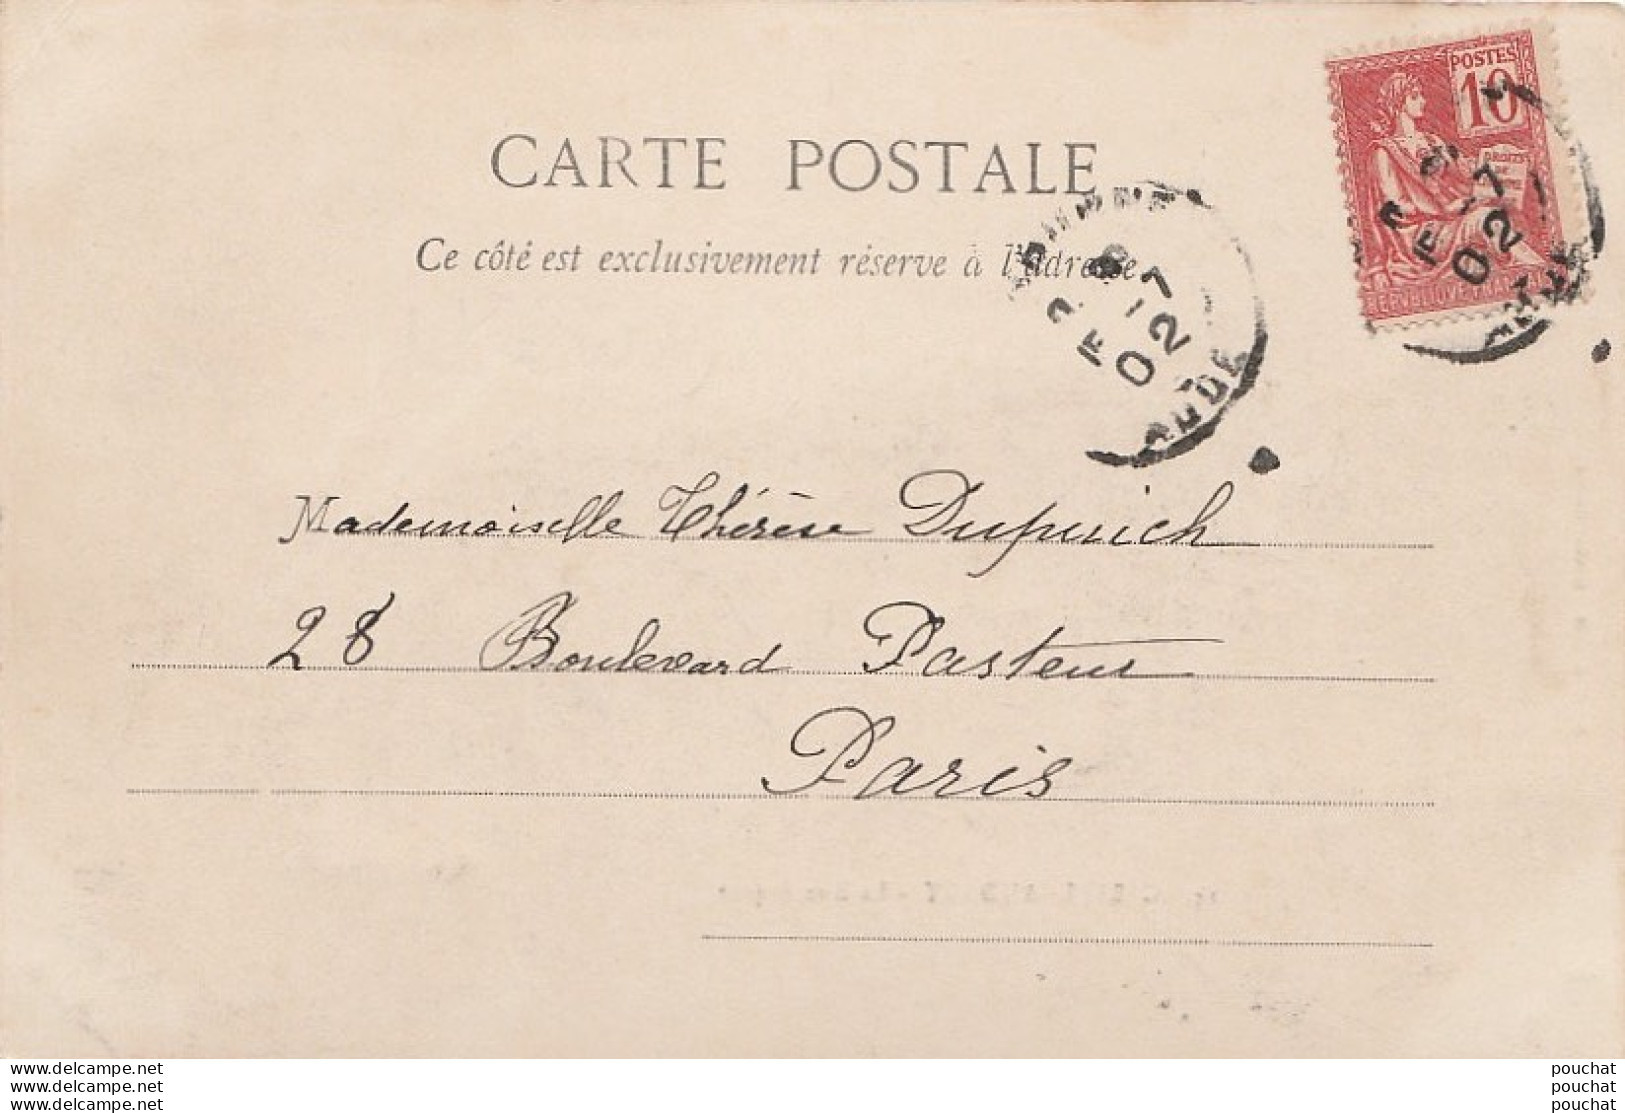 POSTES
10
DROITS
DE
REPVBLIQVE FRANÇAISE
CARTE POSTALE
Ce côté est exclusivement réserve à l'adresse
7
02
AUDE
7
02
Mademoiselle Thérèse Dupuich
28 Boulevard Pasteur
Paris
www.delcampe.net
www.delcampe.net
www.delcampe.net
pouchat
pouchat
pouchat